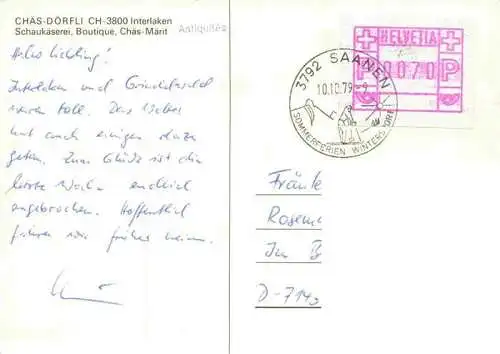 CHÄS-DÖRFLI CH-3800 Interlaken
Schaukäserei, Boutique, Chäs-Märit
Antiquitäs
Hallo Liebling!
Interlaken und Grindelwald
waren toll. Das Wetter
hat auch einiges dazu
getan. Zum Glück ist die
letzte Woche endlich
angebrochen. Hoffentlich
fahren wir früher heim.
HELVETIA
P 0070 P
3792 SAANEN
10.10.79
SOMMERFERIEN WINTERSPORT
Fränke
Rosem
Im B
D-7140